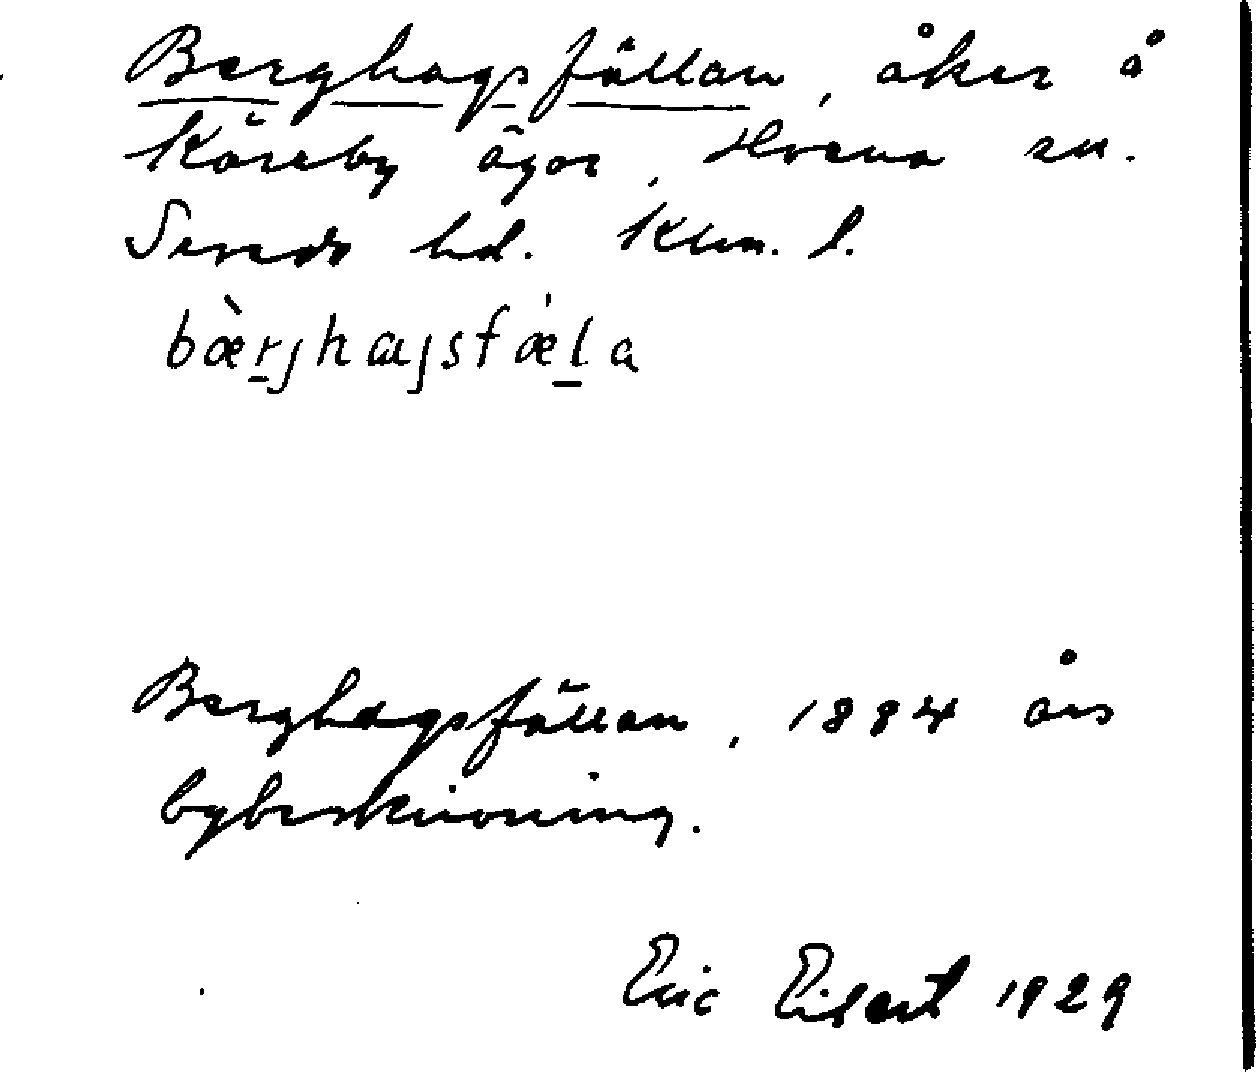 Berghagsfällan, åker å
Kåreby ägor, Hvena sn.
Sevede hd. Klm. l.
bæ̀r̲jhaɡsfæ̍l̲a
Berghagsfällan, 1884 års
bybeskrivning.
Eric Eilert 1929